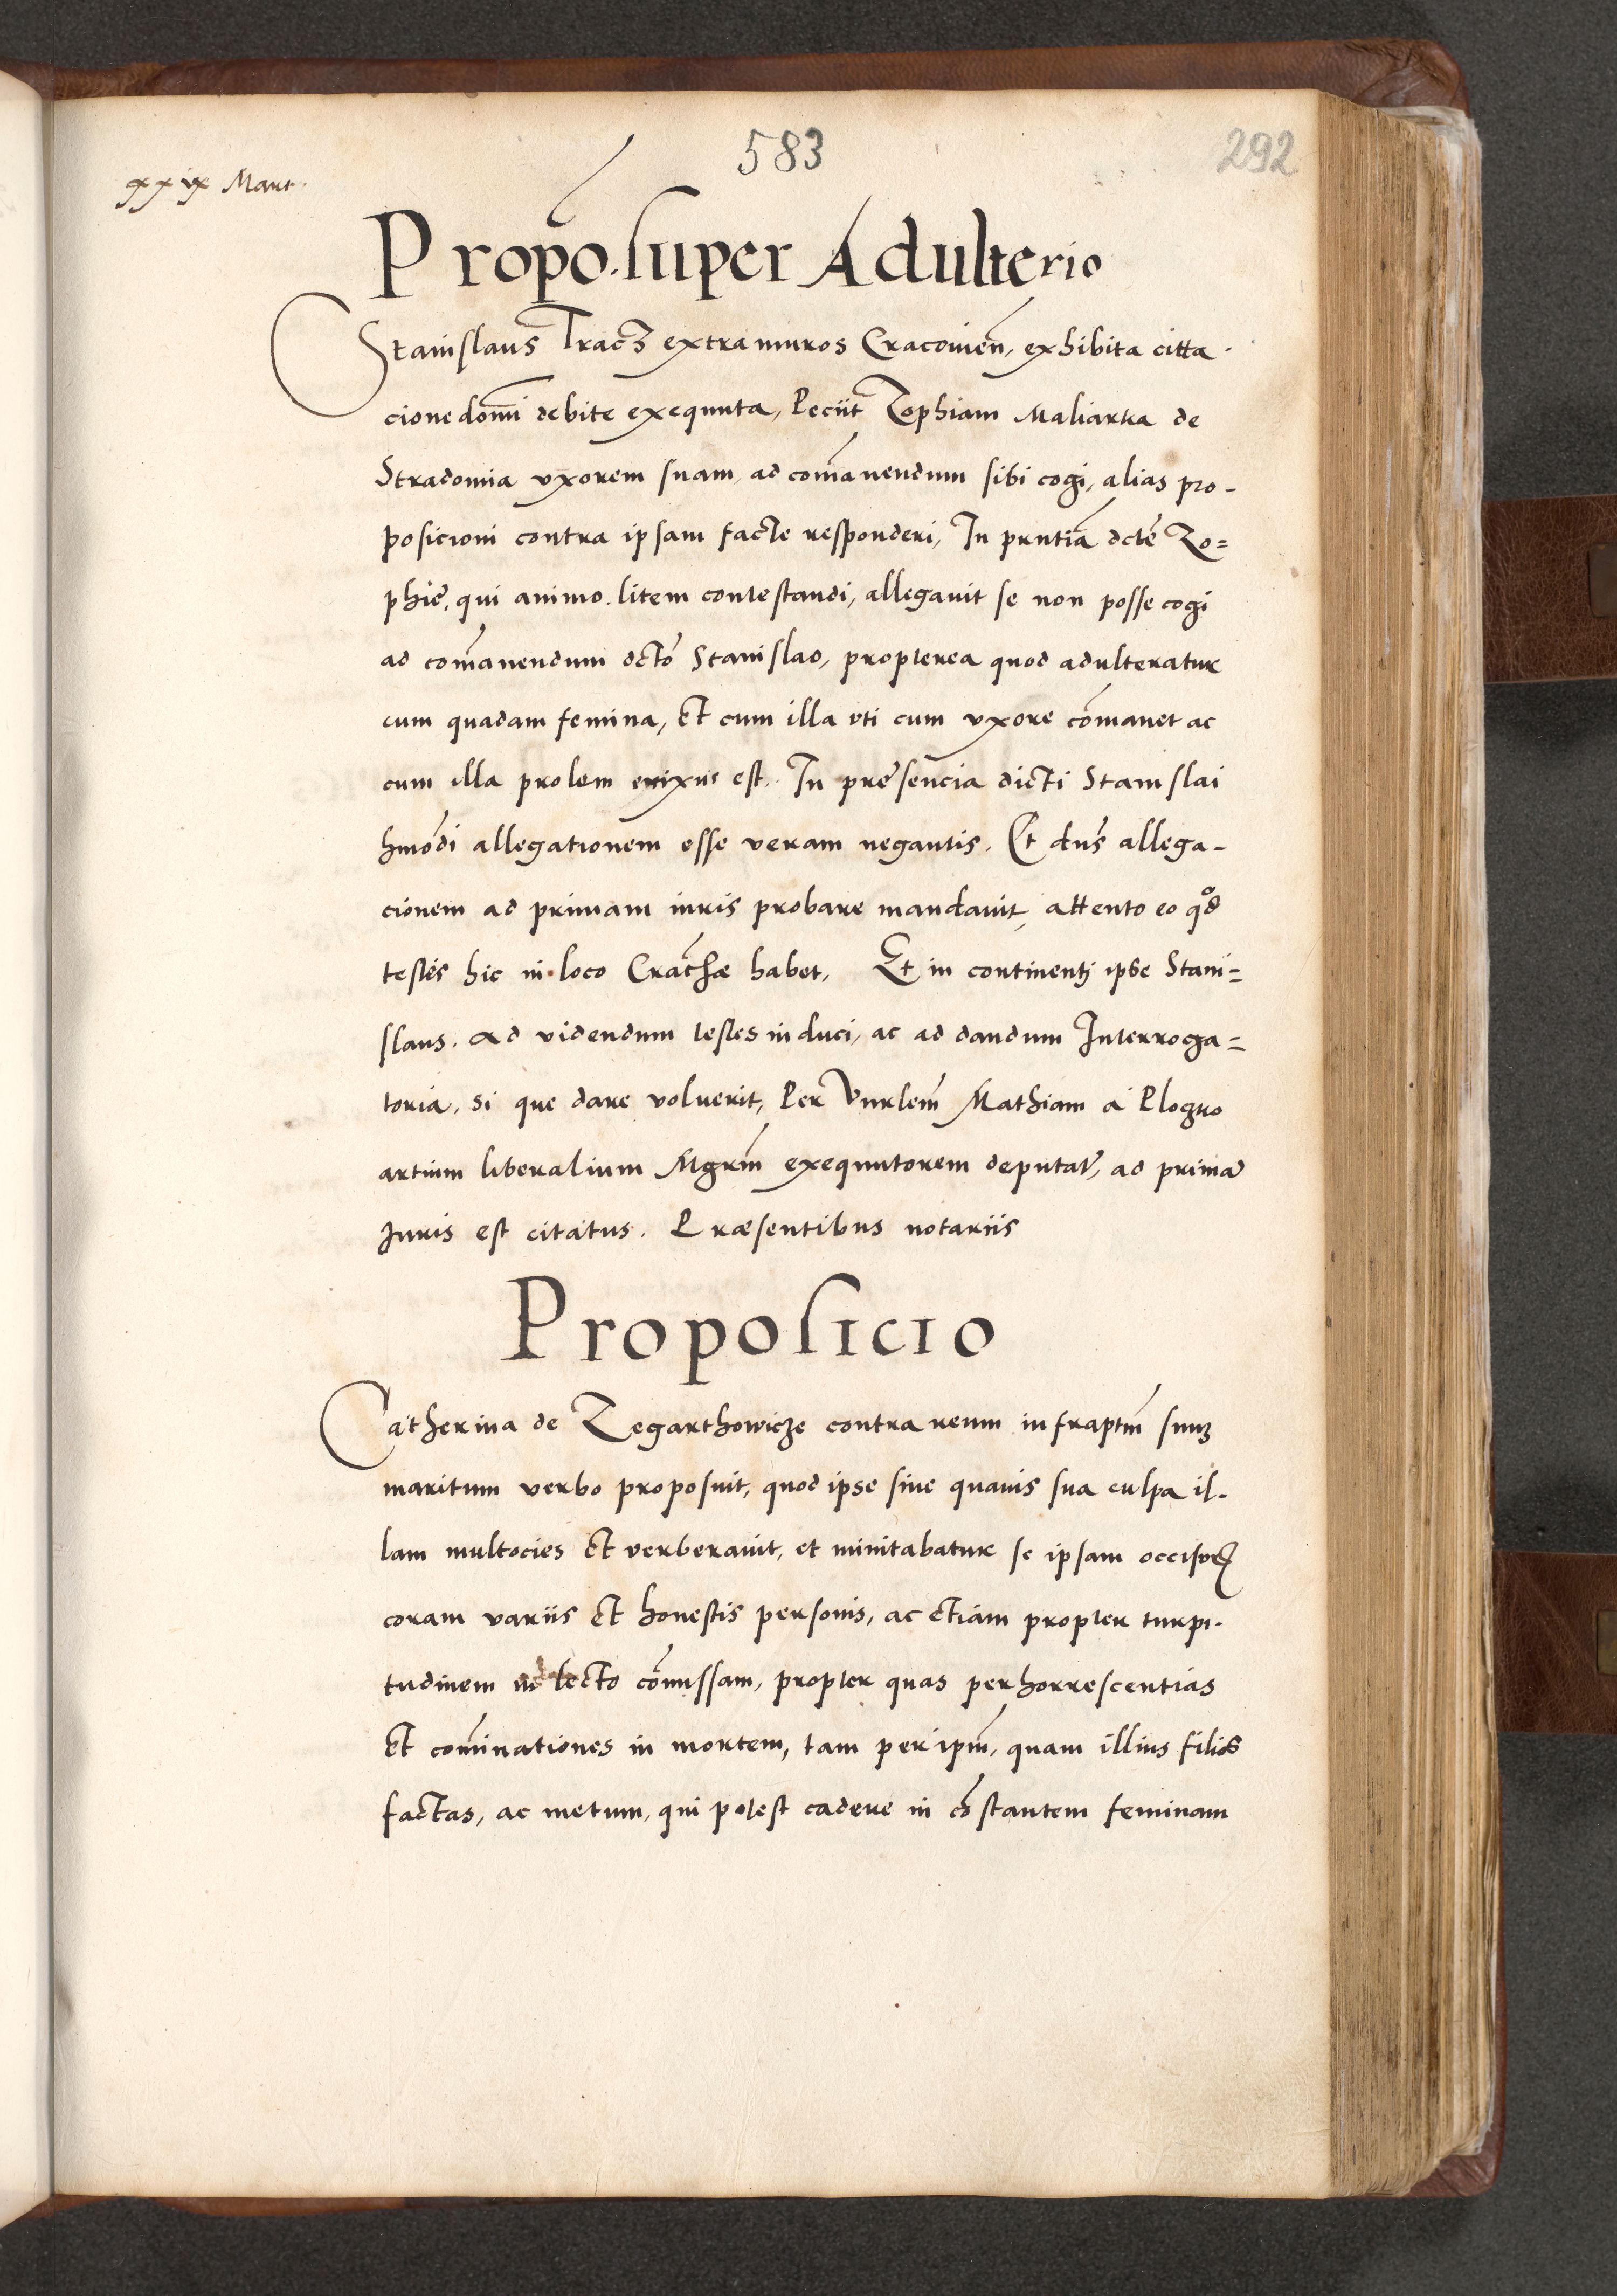 583
292
xxix Mart.
Propō. super Adulterio
Stanislaus Tracz extra muros Cracovien̄, exhibita citta-
cione domī debite exequuta, Peciit Zophiam Maliarka de
Stradomia uxorem suam, ad com̄anendum sibi cogi, alias pro-
posicioni contra ipsam facte responderi, In prntiā dctē Zo=
phiē, qui animo litem contestandi, allegavit se non posse cogi
ad com̄anendum dctō Stanislao, propterea quod adulteratur
cum quadam femina, Et cum illa uti cum uxore cōmanet ac
cum illa prolem enixus est. In presencia dicti Stanislai
hmōdi allegationem esse veram negantis. Et dn̄s allega-
cionem ad primam iuris probare mandavit, attento eo qͦd
testes hic in loco Crac̄hæ habet, Et in continenti ipse Stani=
slaus. Ad videndum testes induci, ac ad dandum Interroga=
toria, si que dare voluerit, Per Vnrlem̄ Mathiam a Ploczko
artium liberalium Mgrm̄ exequutorem deputat̄, ad primā
Iuris est citatus. Præsentibus notariis
Proposicio
Catherina de Zegarthowicze contra reum infraptm̄ suuʒ
maritum verbo proposuit, quod ipse sine quavis sua culpa il-
lam multocies Et verberavit, et minitabatur se ipsam
coram variis Et honestis personis, ac Etiam propter turpi-
tudinem in lecto cōmissam, propter quas perhorrescentias
Et com̄inationes in mortem, tam per ipm̄, quam illius filios
factas, ac metum, qui potest cadere in cōstantem feminam